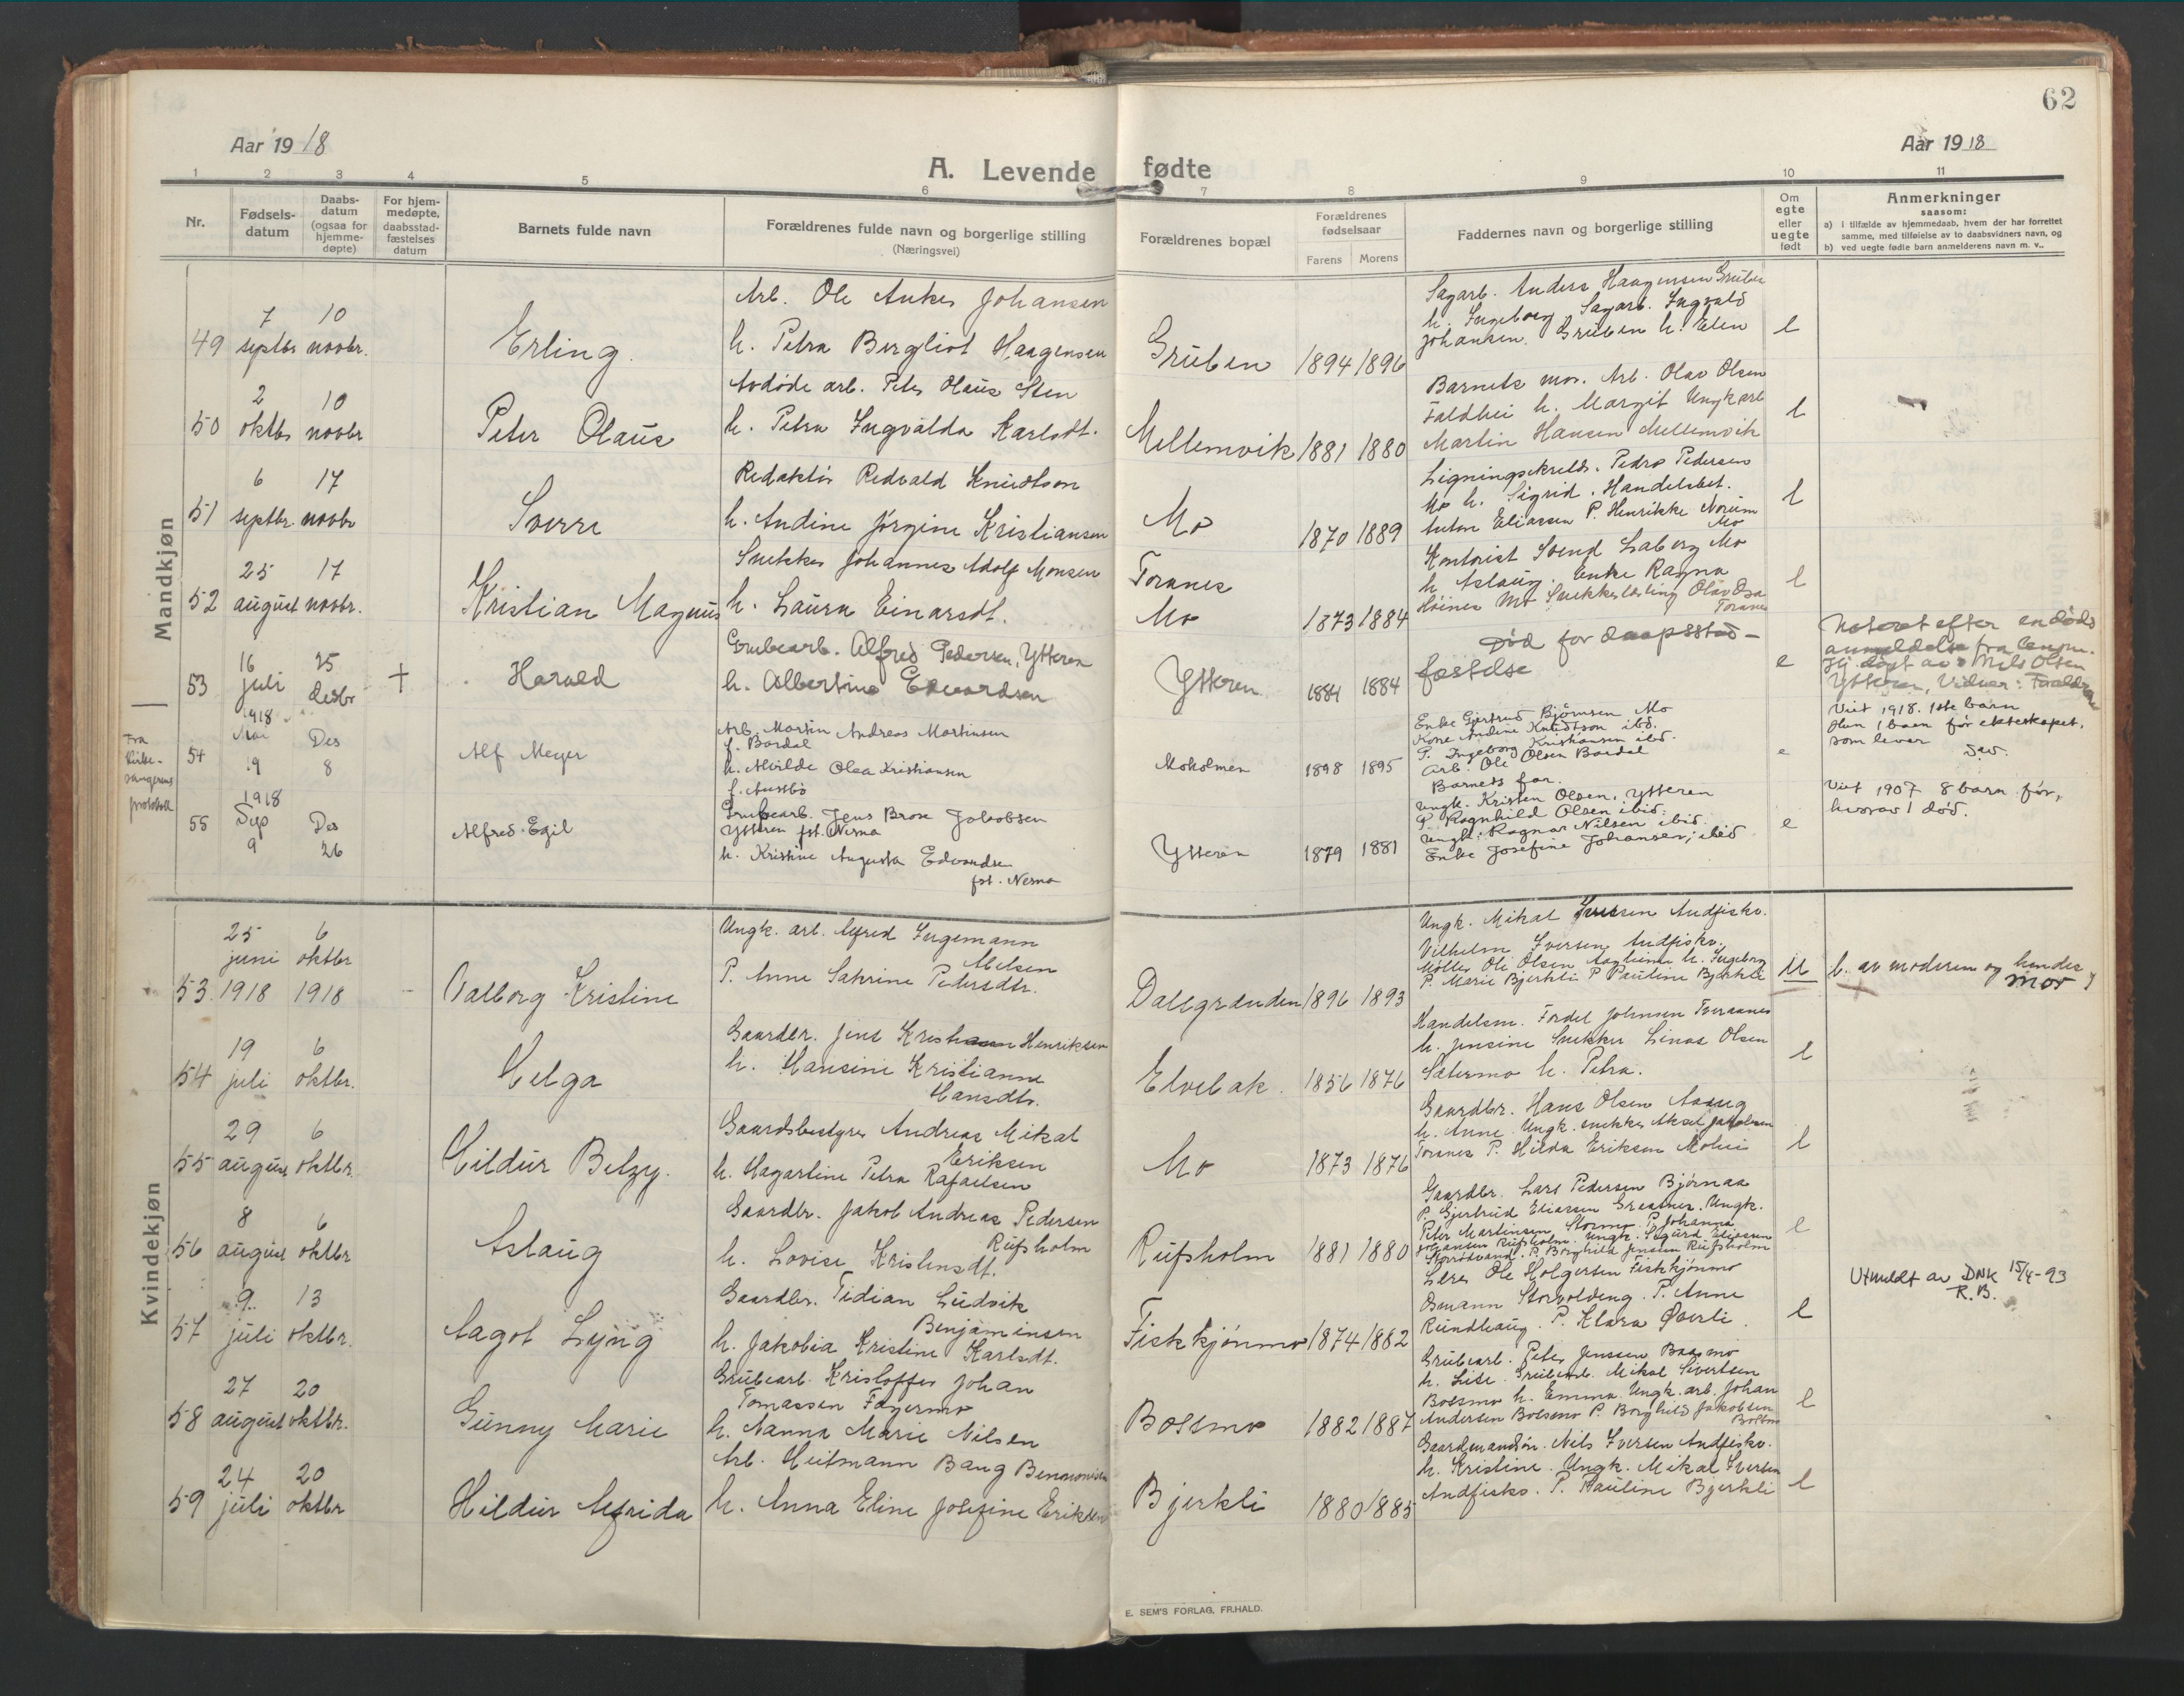 62
Aar 1918
Aar 1918
A. Levende fødte
1 2 3 4 5 6 7 8 9 10 11
Nr.
Fødsels-
datum
Daabs-
datum
(ogsaa for
hjemme-
døpte)
For hjem-
medøpte,
daabsstad-
fæstelses
datum
Barnets fulde navn
Forældrenes fulde navn og borgerlige stilling
(Næringsvei)
Forældrenes bopæl
Forældrenes
fødselsaar
Farens Morens
Faddernes navn og borgerlige stilling
Om
egte
eller
uegte
født
Anmerkninger
saasom:
a) i tilfælde av hjemmedaab, hvem der har forrettet
samme, med tilføielse av to daabsvidners navn, og
b) ved uegte fødte barn anmelderens navn m. v..
Mandkjøn
49
7 septbr
10 novbr.
Erling.
Arb. Ole Anker Johansen
h. Petra Bergliot Haagensen
Gruben
1894 1896
Sagarb. Anders Haagensen Gruben
h. Ingeborg. Sagarb. Ingvald
Johansen Gruben h. Elen
e
50
2 oktbr
10 novbr
Peter Olaus
Avdøde arb. Peter Olaus Sten
h. Petra Ingvalda Karlsdt.
Mellemvik
1881 1880
Barnets mor. Arb. Olav Olsen
h. Margit Ungk arb
Martin Hansen Mellemvik
e
51
6 septbr.
17 novbr
Sverre
Redaktør Redvald Knudtson
h. Andine Jørgine Kristiansen
Mo
1870 1889
Ligningssekretær. Pedro Pedersen
Mo h. Sigrid. Handelsbet.
Anton Eliassen P. Henrikke Norum
Mo
e
52
25 august
17 novbr.
Kristian Magnus
Snekker Johannes Adolf Monsen
h. Laura Einarsdt.
Toranes
Mo
1873 1884
Kontorist Svend Laberg Mo
h. Aslaug. Enke Ragna
Høines Mo Snekkerlærling Olav Dsa
Toranes
e
53
16 juli
25 desbr
†
Harald
Grubearb. Alfred Pedersen, Ytteren
h. Albertine Edvardsen
Ytteren
1881 1884
Død for daapsstad-
fæstelse
e
Notert efter en døds
anmeldelse fra
Hj. døpt av Nils Olsen
Ytteren, Vidner: Forældrene
Fra
Kirke-
sangerens
protokol
54
1918
Mai
9
Des
8
Alf Meyer
Arb. Martin Andreas Martinsen
f. Bordal
h. Alvilde Olea Kristiansen
f. Austbø
Moholmen
1898 1895
Enke Gjertrud Bjørnsen Mo
Kone Andine Knudtson ibd.
P. Ingeborg Kristiansen ibd.
Arb. Ole Olsen Bordal
Barnets far.
e
Viet 1918. 1ste barn
Hun 1 barn før ekteskapet,
som lever
55
1918
Sep
9
Des
26
Alfred Egil
Grubearb. Jens Brose Jakobsen
Ytteren fst. Nesna
h. Kristine Augusta Edvardsen
fst. Nesna
Ytteren
1879 1881
Ungk. Kristen Olsen, Ytteren
P. Ragnhild Olsen ibid.
Ungk. Ragnar Nilsen ibid.
Enke Josefine Johansen, ibid
e
Viet 1907 8 barn før,
hvorav 1 død.
Kvindekjøn
53.
25 juni 1918
6 oktbr 1918
Valborg Kristine
Ungk. arb. Alfred Ingemann
Nilsen
P. Anne Satrine Petersdtr.
Dalsgrænden
1896 1893
Ungk. Mikal Iversen Andfiskv.
Vilhelm Iversen, Andfiskv.,
Møller Ole Olsen h. Ingeborg
P. Marie Bjerkli P Pauline Bjerkli
u
b. av moderen og hendes
mor
54
19 juli
6 oktbr.
Helga
Gaardbr. Jens Kristian Henriksen
h. Hansine Kristianne
Hansdtr.
Elvebak.
1856 1876
Handelsm. Fordel Johnsen Tveraanes
h. Jensine Snekker Linas Olsen
Sætermo h. Petra.
e
55
29 august
6 oktbr.
Hildur Betzy.
Gaardsbestyrer Andreas Mikal
Eriksen
h. Hagartine Petra Rafaelsen
Mo
1873 1876
Gaardbr. Hans Olsen Aasug
h. Anne. Ungk. snekker Aksel Jakobsen
Toranes P. Hilda Eriksen Moheia
e
56
8 august
6 oktbr
Aslaug
Gaardbr. Jakob Andreas Pedersen
Rufsholm
h. Lovise Kristensdt.
Rufsholm
1881 1880
Gaardbr. Lars Pedersen Bjørnaa
P. Gjertrud Eliassen Ungk.
Peter Martinsen Stormo. P. Johanna
Johansen Rufsholm. Ungk. Sigurd Eliassen
P. Borghild Jensen Rufsholm
e
57
9. juli
13 oktbr.
Aagot Lyng
Gaardbr. Tidian Ludvik
Benjaminsen
h. Jakobia Kristine Karlsdt.
Fiskkjønmo
1874 1882
Ole Holgersen Fiskkjønmo
Osmann Storvoldeng. P. Anne
Rundhaug. P. Klara Øverli.
e
Utmeldt av DNK 15/4-93
R.B.
58
27 august
20 oktbr.
Gunny Marie
Grubearb. Kristoffer Johan
Tomassen Fagermo
h. Nanna Marie Nilsen
Bossmo
1882 1887
Grubearb. Peter Jenssen Baasmo
h. Lise. Grubearb. Mikal Sivertsen
Bossmo h. Emma. Ungk. arb. Johan
Andersen Bossmo P. Borghild Jakobsen
Bossmo
e
59
24 juli
20 oktbr
Hildur Alfrida
Arb. Heitmann Baug Benonisen
h. Anna Eline Josefine Eriksen
Bjerkli
1880 1885
Gaardmandsøn. Nils Iversen Andfiskv.
h. Kristine. Ungk. Mikal Iversen
Andfiskv. P. Pauline Bjerkli
e
E. SEM'S FORLAG, FR.HALD.